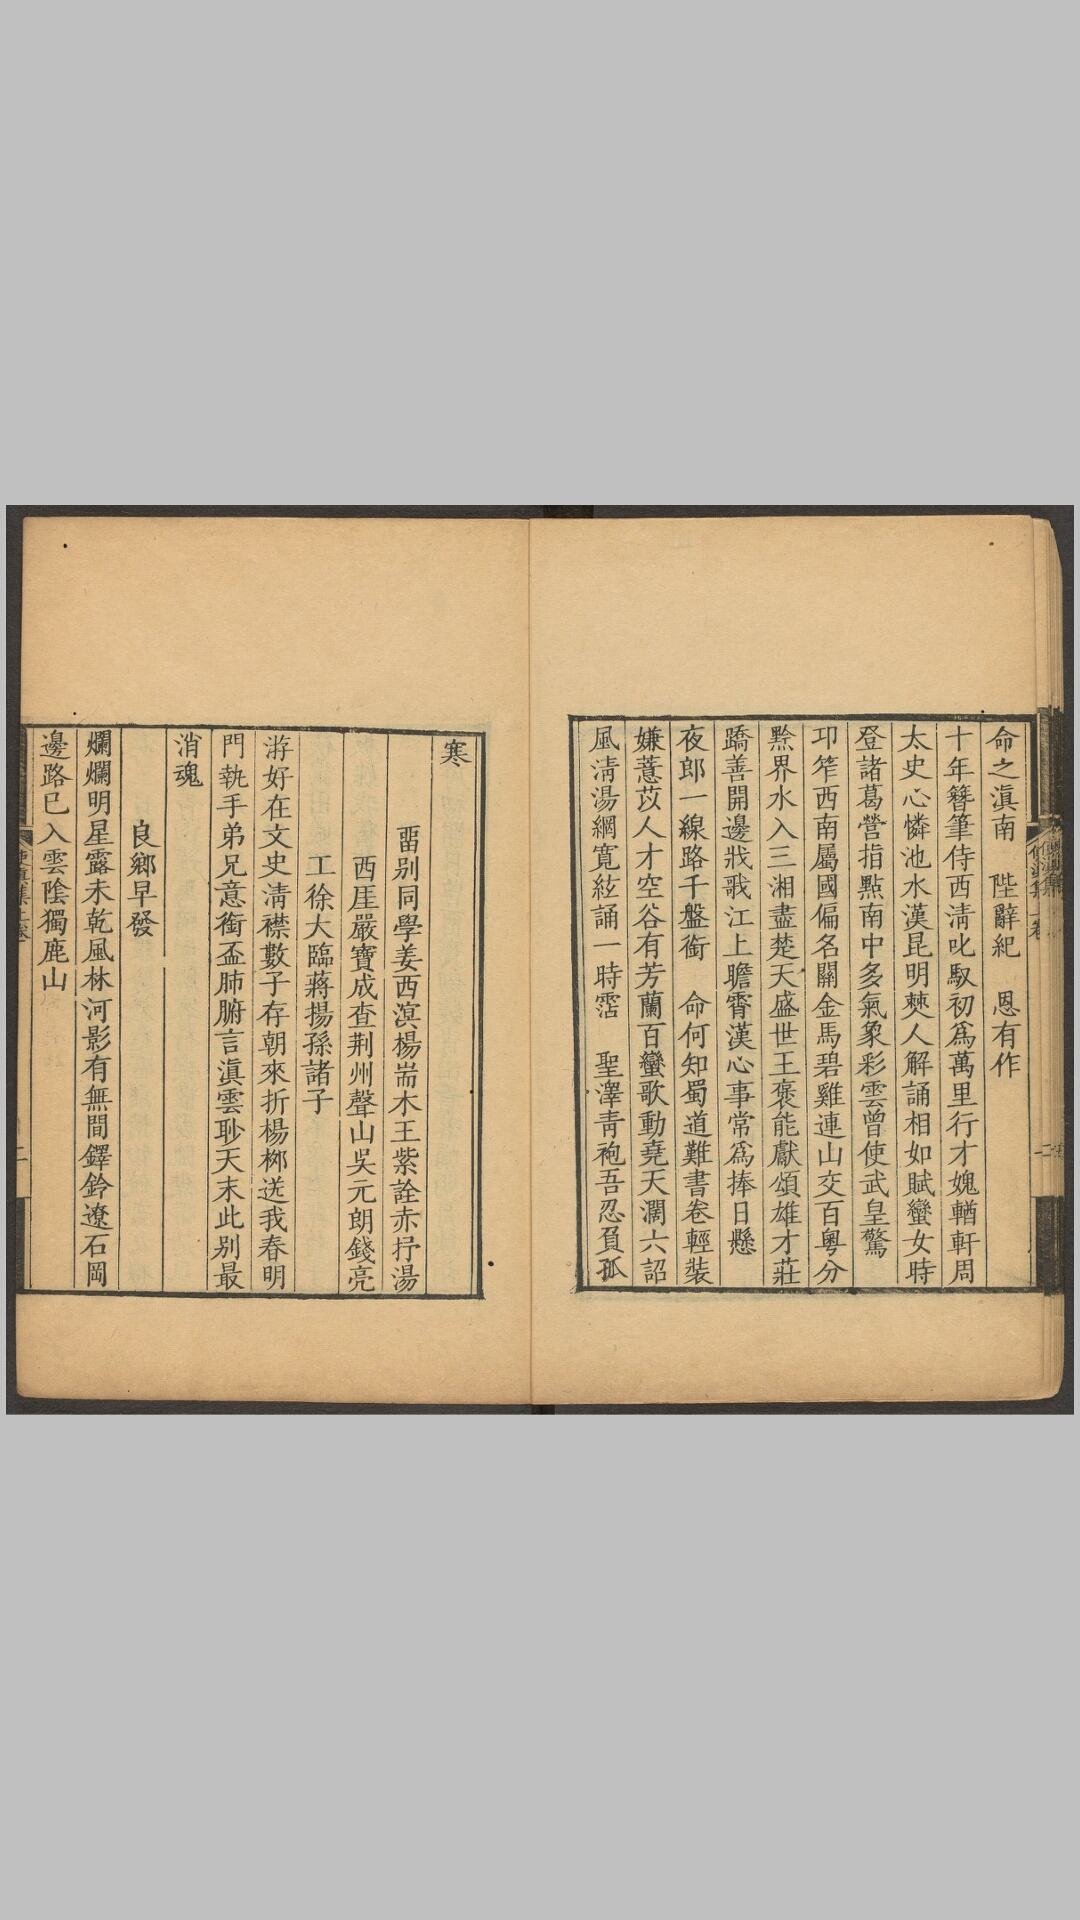 命之滇南　陛辭紀　恩有作
十年簪筆侍西淸叱馭初爲萬里行才媿輶軒周
太史心憐池水漢昆明僰人解誦相如賦蠻女時
登諸葛營指點南中多氣象彩雲曾使武皇驚
卭笮西南屬國偏名關金馬碧雞連山交百粤分
黔界水入三湘盡楚天盛世王褒能獻頌雄才莊
蹻善開邊戕歌江上瞻霄漢心事常爲捧日懸
夜郎一線路千盤銜　命何知蜀道難書卷輕裝
嫌薏苡人才空谷有芳蘭百蠻歌動堯天濶六詔
風淸湯網寛絃誦一時霑　聖澤靑袍吾忍負孤
寒
畱别同學姜西溟楊耑木王紫詮赤抒湯
西厓嚴寶成查荆州聲山吳元朗錢亮
工徐大臨蔣揚孫諸子
游好在文史淸襟數子存朝來折楊栁送我春明
門執手弟兄意銜盃肺腑言滇雲耿天末此别最
消魂
良鄉早發
爛爛明星露未乾風林河影有無間鐸鈴遼石岡
邊路巳入雲陰獨鹿山